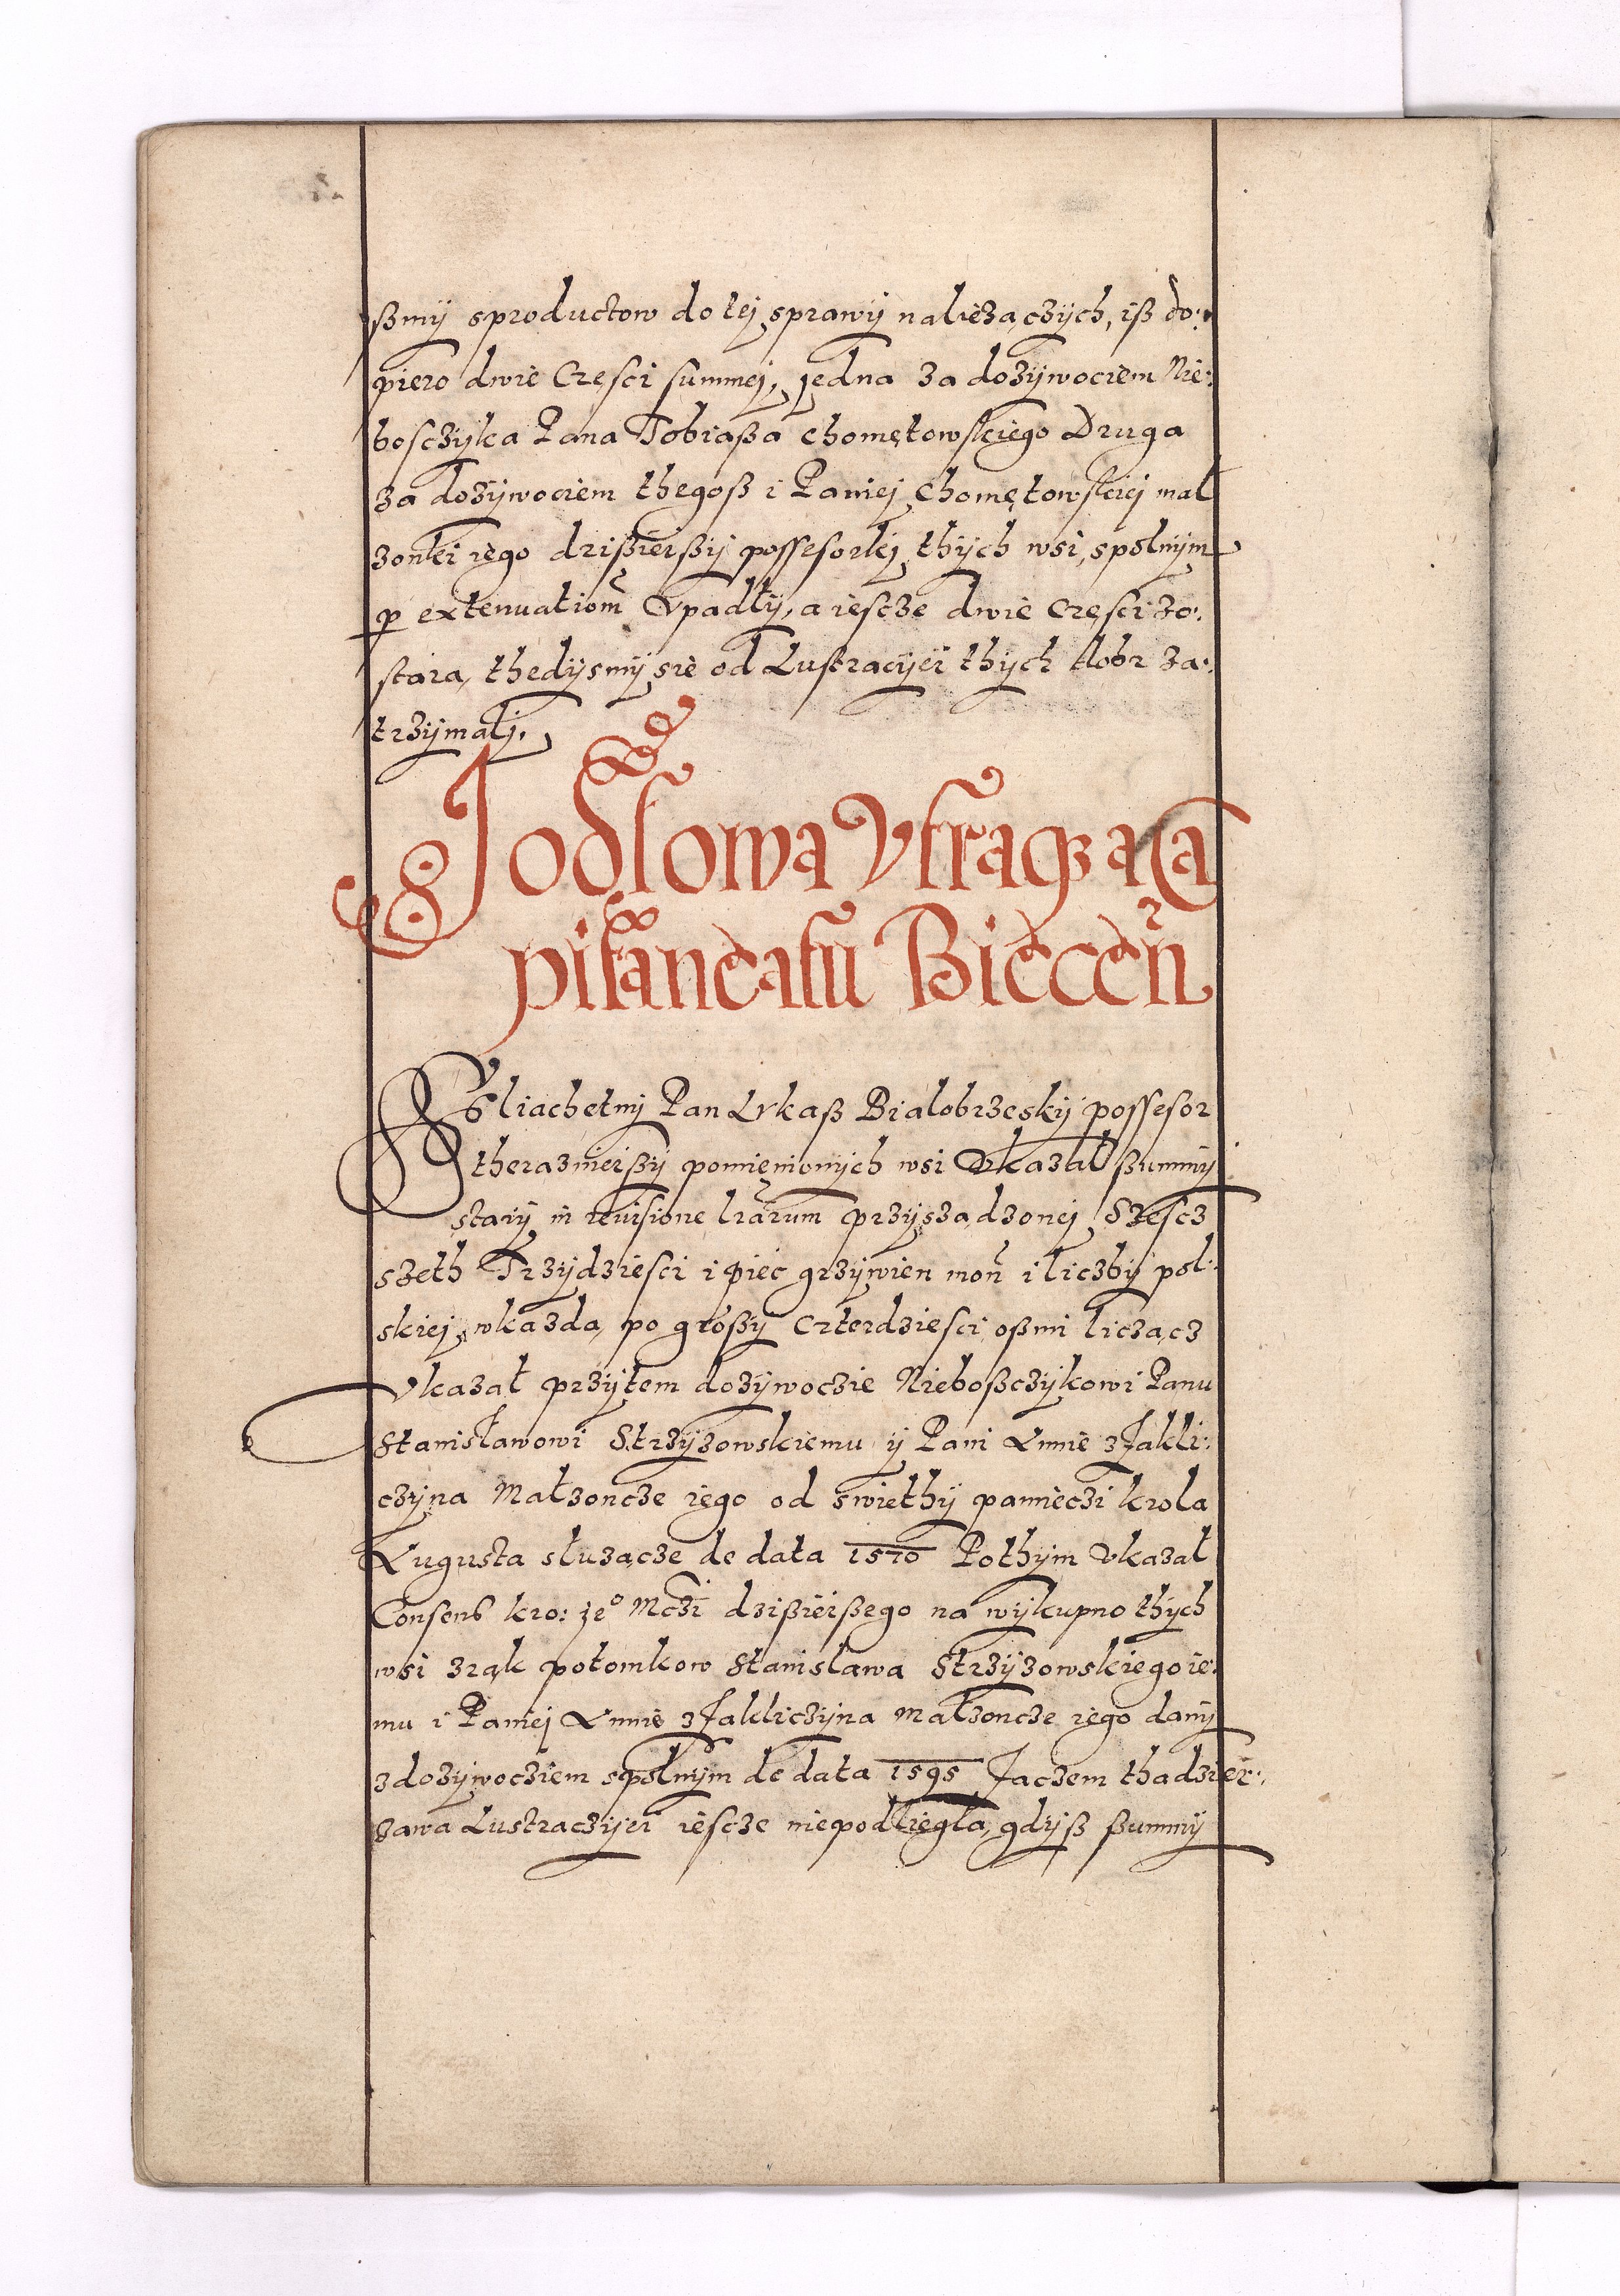 ßmÿ sproductow do tej sprawÿ належącżÿch, iß do:
piero dwie Częsci summej, jedna za dozÿwociem Nie:
boscżÿka Pana Tobiaßa Chomętowskiego Druga
za dozÿwociem thegoß i Paniej Chomętowskiej mał
zonki iego dzißieißÿ possesorkj thÿch wsi, spolnÿm
p extenuationē Vpadłÿ, a iescze dwie Częsci zo:
staią, thedÿsmÿ się od Lustracÿei thÿch dobr za:
trzÿmalj.
Jodłowa Vtraqz a Ca
pitaneatu Biecceñ
Sßliachetnj Pan Lvkaß Bialobrzeskÿ possesor
therazmeißÿ pomienionÿch wsi Vkazał ßummÿ
starÿ in revisione lrarum przÿsządzonej Szescz
szeth Trzÿdziesci i pięc grzÿwien moñ i liczbÿ pol:
skiej, wkazdą po großÿ Czterdziesci, oßmi licząc
Vkazał przÿtem dozÿwoczie Nieboßczÿkowi Panu
Stanisławowi Strzÿzowskiemu ÿ Pani Annie z Jakli:
czÿna Małzoncze iego od swiethÿ pamięczi krola
Augusta służącze de data 1570 Pothÿm Vkazał
Consens kro: jeº Mczi dzißieißego na wÿkupno thÿch
wsi z rąk potomkow Stanisława Strzÿzowskiego ie:
mu i Paniej Annie z Jakliczÿna Małzoncze iego danÿ
z dozÿwocziem spolnÿm de data 1595 Jaczem tha dzier:
zawa Lustraczÿei iescze niepodlięgła, gdÿß ßummÿ